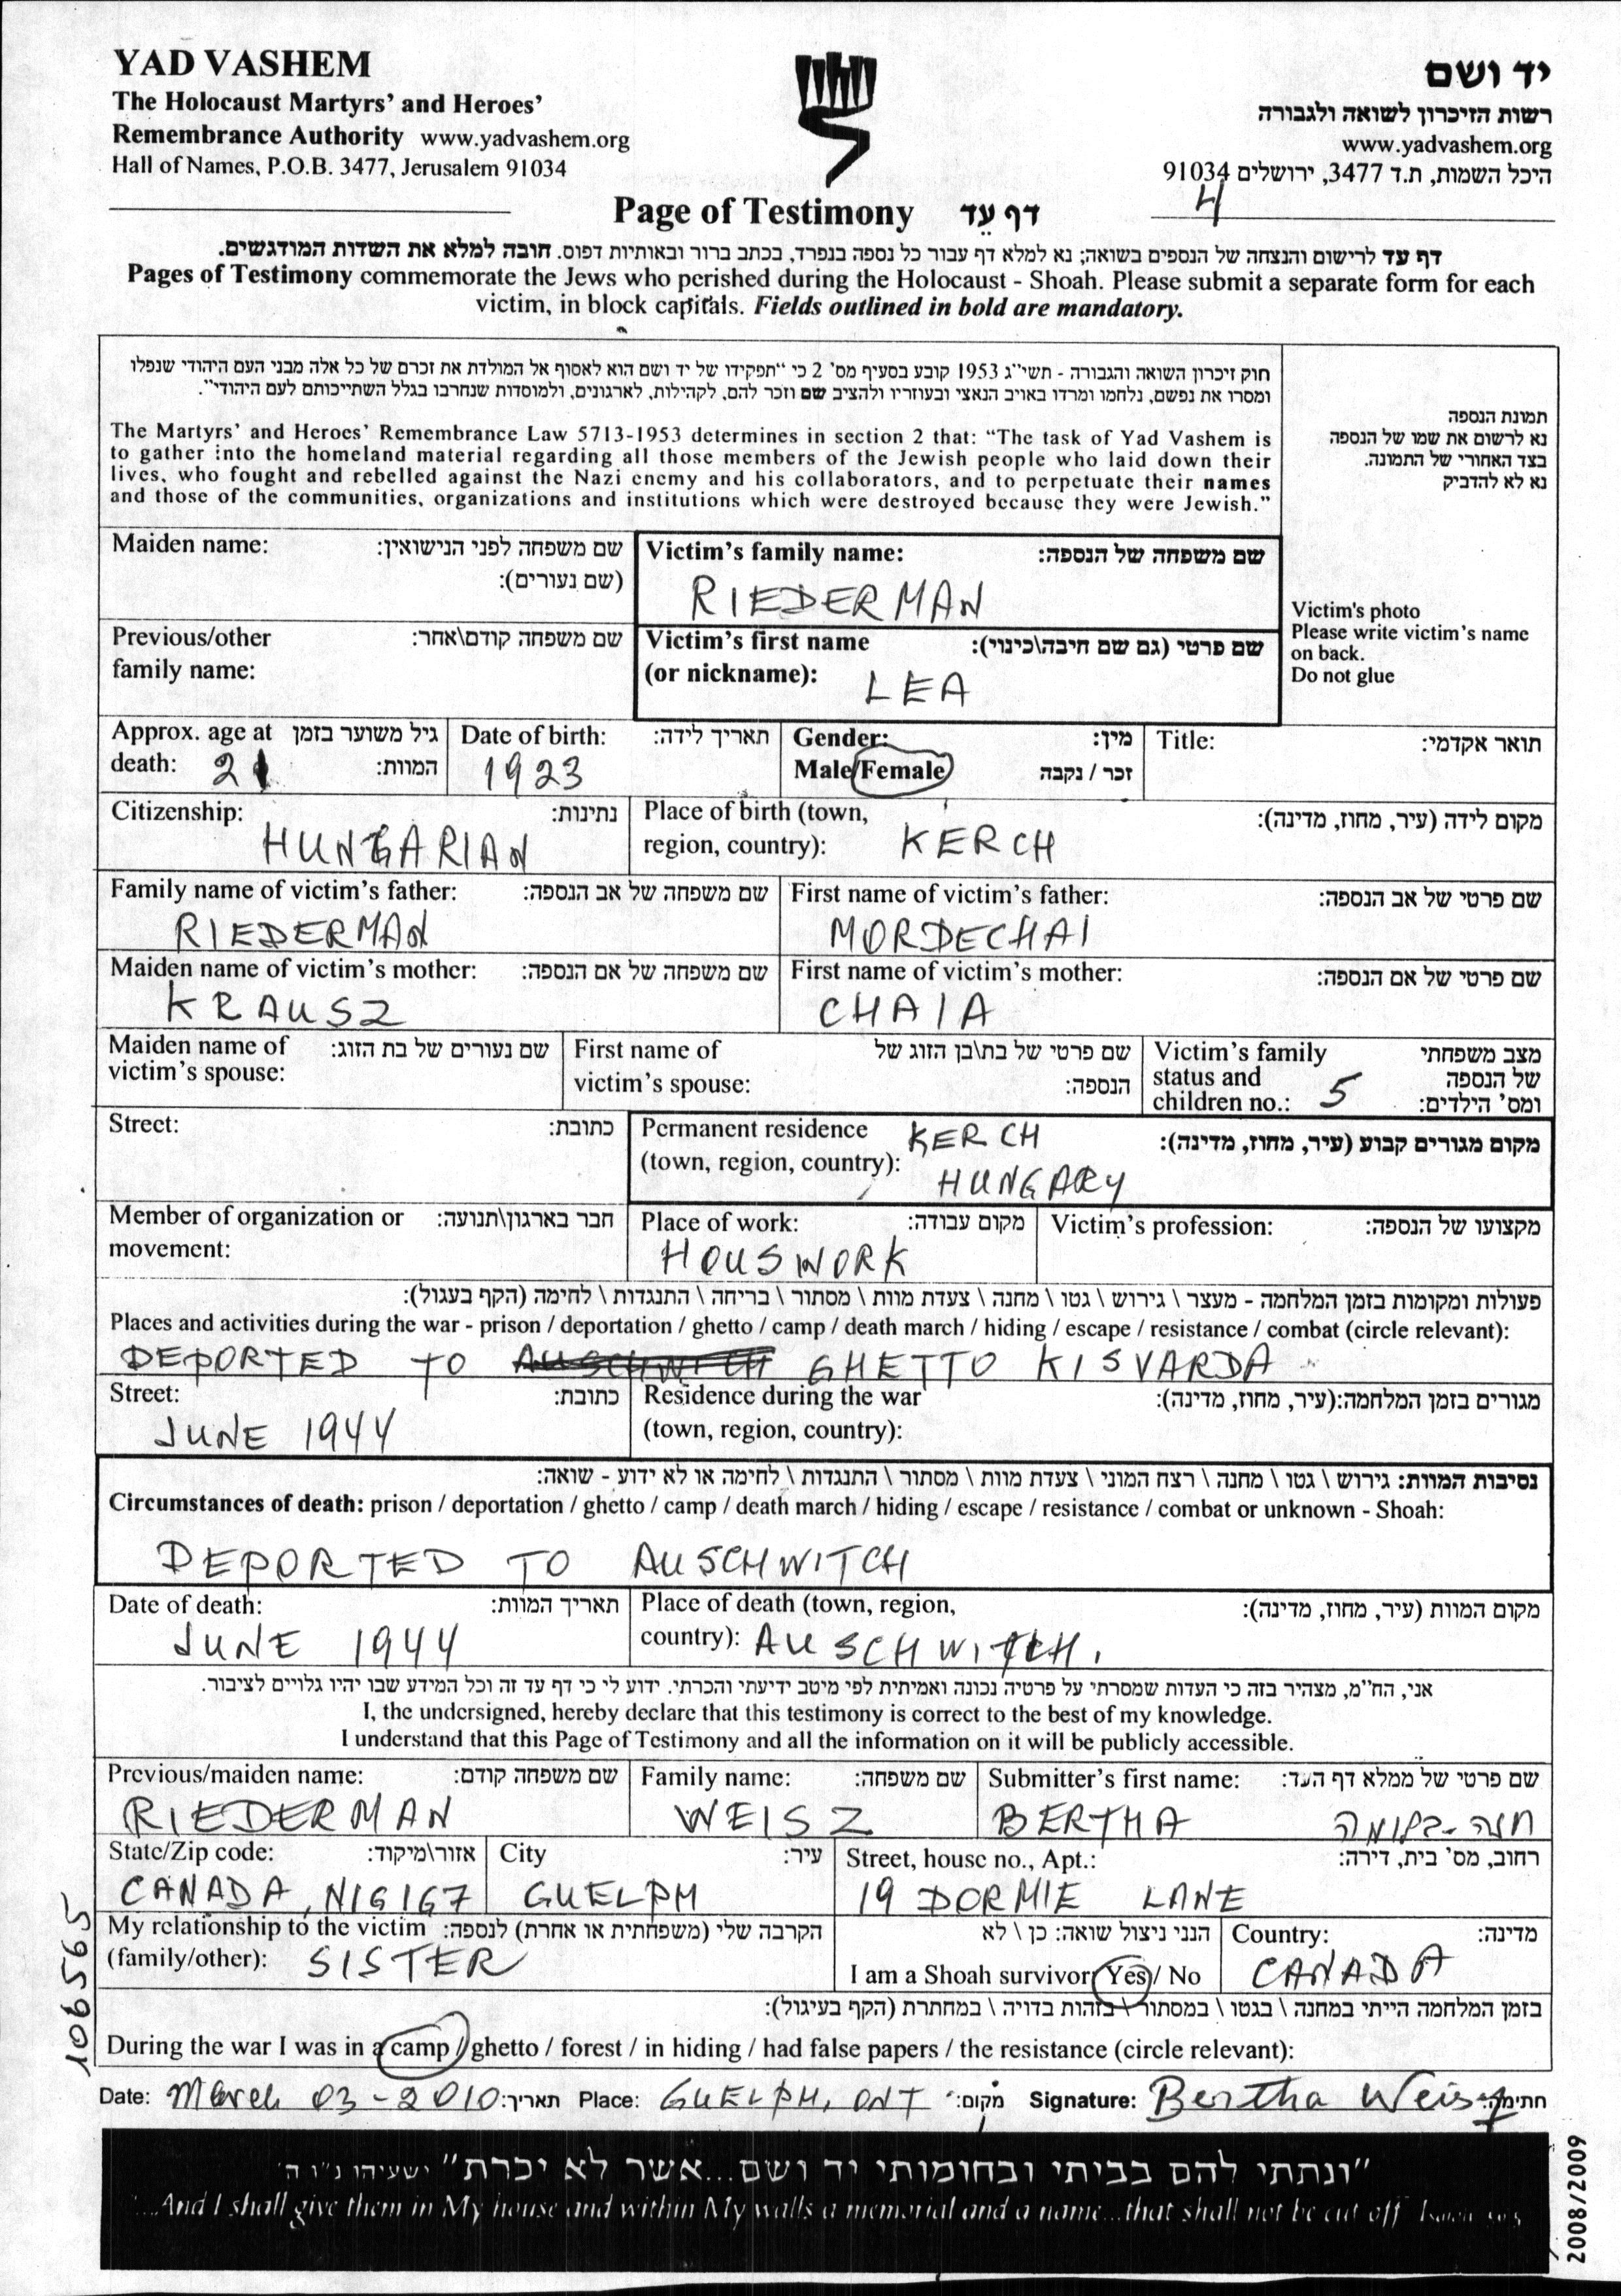 YAD VASHEM
The Holocaust Martyrs' and Heroes'
Remembrance Authority www.yadvashem.org
Hall of Names, P.O.B. 3477, Jerusalem 91034
יד ושם
רשות הזיכרון לשואה ולגבורה
www.yadvashem.org
היכל השמות, ת.ד 3477, ירושלים 91034
4
Page of Testimony דף עֵד
דף עד לרישום והנצחה של הנספים בשואה; נא למלא דף עבור כל נספה בנפרד, בכתב ברור ובאותיות דפוס. חובה למלא את השדות המודגשים.
Pages of Testimony commemorate the Jews who perished during the Holocaust - Shoah. Please submit a separate form for each
victim, in block capitals. Fields outlined in bold are mandatory.
חוק זיכרון השואה והגבורה - תשי"ג 1953 קובע בסעיף מס' 2 כי "תפקידו של יד ושם הוא לאסוף אל המולדת את זכרם של כל אלה מבני העם היהודי שנפלו
ומסרו את נפשם, נלחמו ומרדו באויב הנאצי ובעוזריו ולהציב שם וזכר להם, לקהילות, לארגונים, ולמוסדות שנחרבו בגלל השתייכותם לעם היהודי".
The Martyrs' and Heroes' Remembrance Law 5713-1953 determines in section 2 that: "The task of Yad Vashem is
to gather into the homeland material regarding all those members of the Jewish people who laid down their
lives, who fought and rebelled against the Nazi enemy and his collaborators, and to perpetuate their names
and those of the communities, organizations and institutions which were destroyed because they were Jewish."
תמונת הנספה
נא לרשום את שמו של הנספה
בצד האחורי של התמונה.
נא לא להדביק
Victim's photo
Please write victim's name
on back.
Do not glue
Maiden name: שם משפחה לפני הנישואין:
(שם נעורים):
Victim's family name: שם משפחה של הנספה:
RIEDERMAN
Previous/other שם משפחה קודם\אחר:
family name:
Victim's first name שם פרטי (גם שם חיבה\כינוי):
(or nickname): LEA
Approx. age at גיל משוער בזמן
death: 21 המוות:
Date of birth: תאריך לידה:
1923
Gender: מין:
Male/Female זכר / נקבה
Title: תואר אקדמי:
Citizenship: נתינות:
HUNGARIAN
Place of birth (town, מקום לידה (עיר, מחוז, מדינה):
region, country): KERCH
Family name of victim's father: שם משפחה של אב הנספה:
RIEDERMAN
First name of victim's father: שם פרטי של אב הנספה:
MORDECHAI
Maiden name of victim's mother: שם משפחה של אם הנספה:
KRAUSZ
First name of victim's mother: שם פרטי של אם הנספה:
CHAIA
Maiden name of שם נעורים של בת הזוג:
victim's spouse:
First name of שם פרטי של בת\בן הזוג של
victim's spouse: הנספה:
Victim's family מצב משפחתי
status and של הנספה
children no.: 5 ומס' הילדים:
Street: כתובת:
Permanent residence KERCH מקום מגורים קבוע (עיר, מחוז, מדינה):
(town, region, country): HUNGARY
Member of organization or חבר בארגון\תנועה:
movement:
Place of work: מקום עבודה:
HOUSWORK
Victim's profession: מקצועו של הנספה:
פעולות ומקומות בזמן המלחמה - מעצר \ גירוש \ גטו \ מחנה \ צעדת מוות \ מסתור \ בריחה \ התנגדות \ לחימה (הקף בעגול):
Places and activities during the war - prison / deportation / ghetto / camp / death march / hiding / escape / resistance / combat (circle relevant):
DEPORTED TO AUSCHWITCH GHETTO KISVARDA
Street: כתובת:
JUNE 1944
Residence during the war מגורים בזמן המלחמה:(עיר, מחוז, מדינה):
(town, region, country):
נסיבות המוות: גירוש \ גטו \ מחנה \ רצח המוני \ צעדת מוות \ מסתור \ התנגדות \ לחימה או לא ידוע - שואה:
Circumstances of death: prison / deportation / ghetto / camp / death march / hiding / escape / resistance / combat or unknown - Shoah:
DEPORTED TO AUSCHWITCH
Date of death: תאריך המוות:
JUNE 1944
Place of death (town, region, מקום המוות (עיר, מחוז, מדינה):
country): AUSCHWITCH.
אני, הח"מ, מצהיר בזה כי העדות שמסרתי על פרטיה נכונה ואמיתית לפי מיטב ידיעתי והכרתי. ידוע לי כי דף עד זה וכל המידע שבו יהיו גלויים לציבור.
I, the undersigned, hereby declare that this testimony is correct to the best of my knowledge.
I understand that this Page of Testimony and all the information on it will be publicly accessible.
Previous/maiden name: שם משפחה קודם:
RIEDERMAN
Family name: שם משפחה:
WEISZ
Submitter's first name: שם פרטי של ממלא דף העד:
BERTHA חנה-בלומה
State/Zip code: אזור\מיקוד:
CANADA, N1G 1G7
City עיר:
GUELPH
Street, house no., Apt.: רחוב, מס' בית, דירה:
19 DORMIE LANE
My relationship to the victim הקרבה שלי (משפחתית או אחרת) לנספה:
(family/other): SISTER
הנני ניצול שואה: כן \ לא
I am a Shoah survivor Yes / No
Country: מדינה:
CANADA
בזמן המלחמה הייתי במחנה \ בגטו \ במסתור \ בזהות בדויה \ במחתרת (הקף בעיגול):
During the war I was in a camp / ghetto / forest / in hiding / had false papers / the resistance (circle relevant):
Date: March 03-2010 תאריך: Place: GUELPH, ONT מקום: Signature: Bertha Weisz חתימה:
106565
"ונתתי להם בביתי ובחומותי יד ושם...אשר לא יכרת" ישעיהו נ"ו ה'
"...And I shall give them in My house and within My walls a memorial and a name...that shall not be cut off"
2008/2009